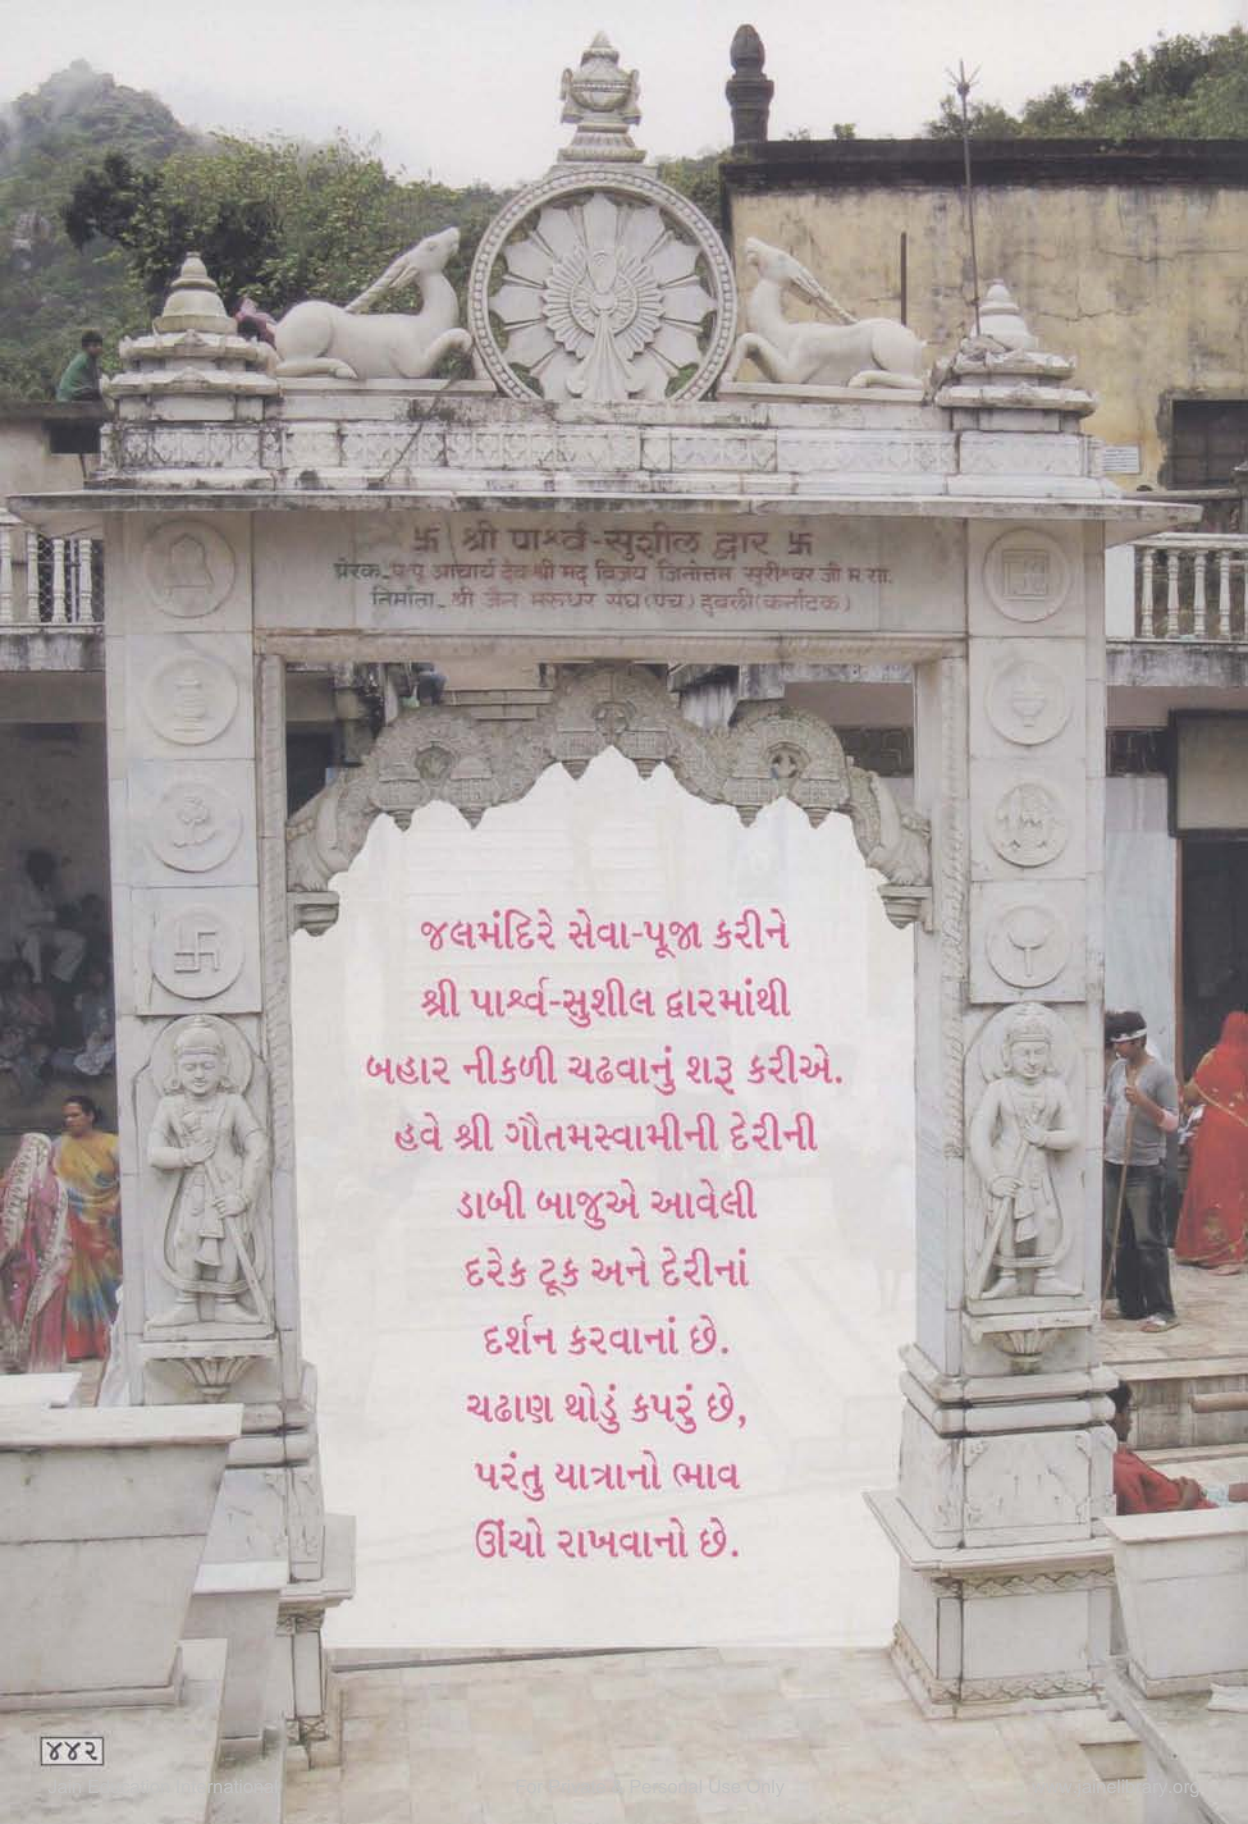 卐 श्री पार्श्व-सुशील द्वार 卐
प्रेरक_प.पू. आचार्य देव श्री मद् विजय जिनोत्तम सूरीश्वर जी म.सा.
निर्माता_श्री जैन मरूधर संघ (पंच) हुबली (कर्नाटक)
જલમંદિરે સેવા-પૂજા કરીને
શ્રી પાર્શ્વ-સુશીલ દ્વારમાંથી
બહાર નીકળી ચઢવાનું શરૂ કરીએ.
હવે શ્રી ગૌતમસ્વામીની દેરીની
ડાબી બાજુએ આવેલી
દરેક ટૂક અને દેરીનાં
દર્શન કરવાનાં છે.
ચઢાણ થોડું કપરું છે,
પરંતુ યાત્રાનો ભાવ
ઊંચો રાખવાનો છે.
૪૪૨
Jain Education International
For Private & Personal Use Only
www.jainelibrary.org